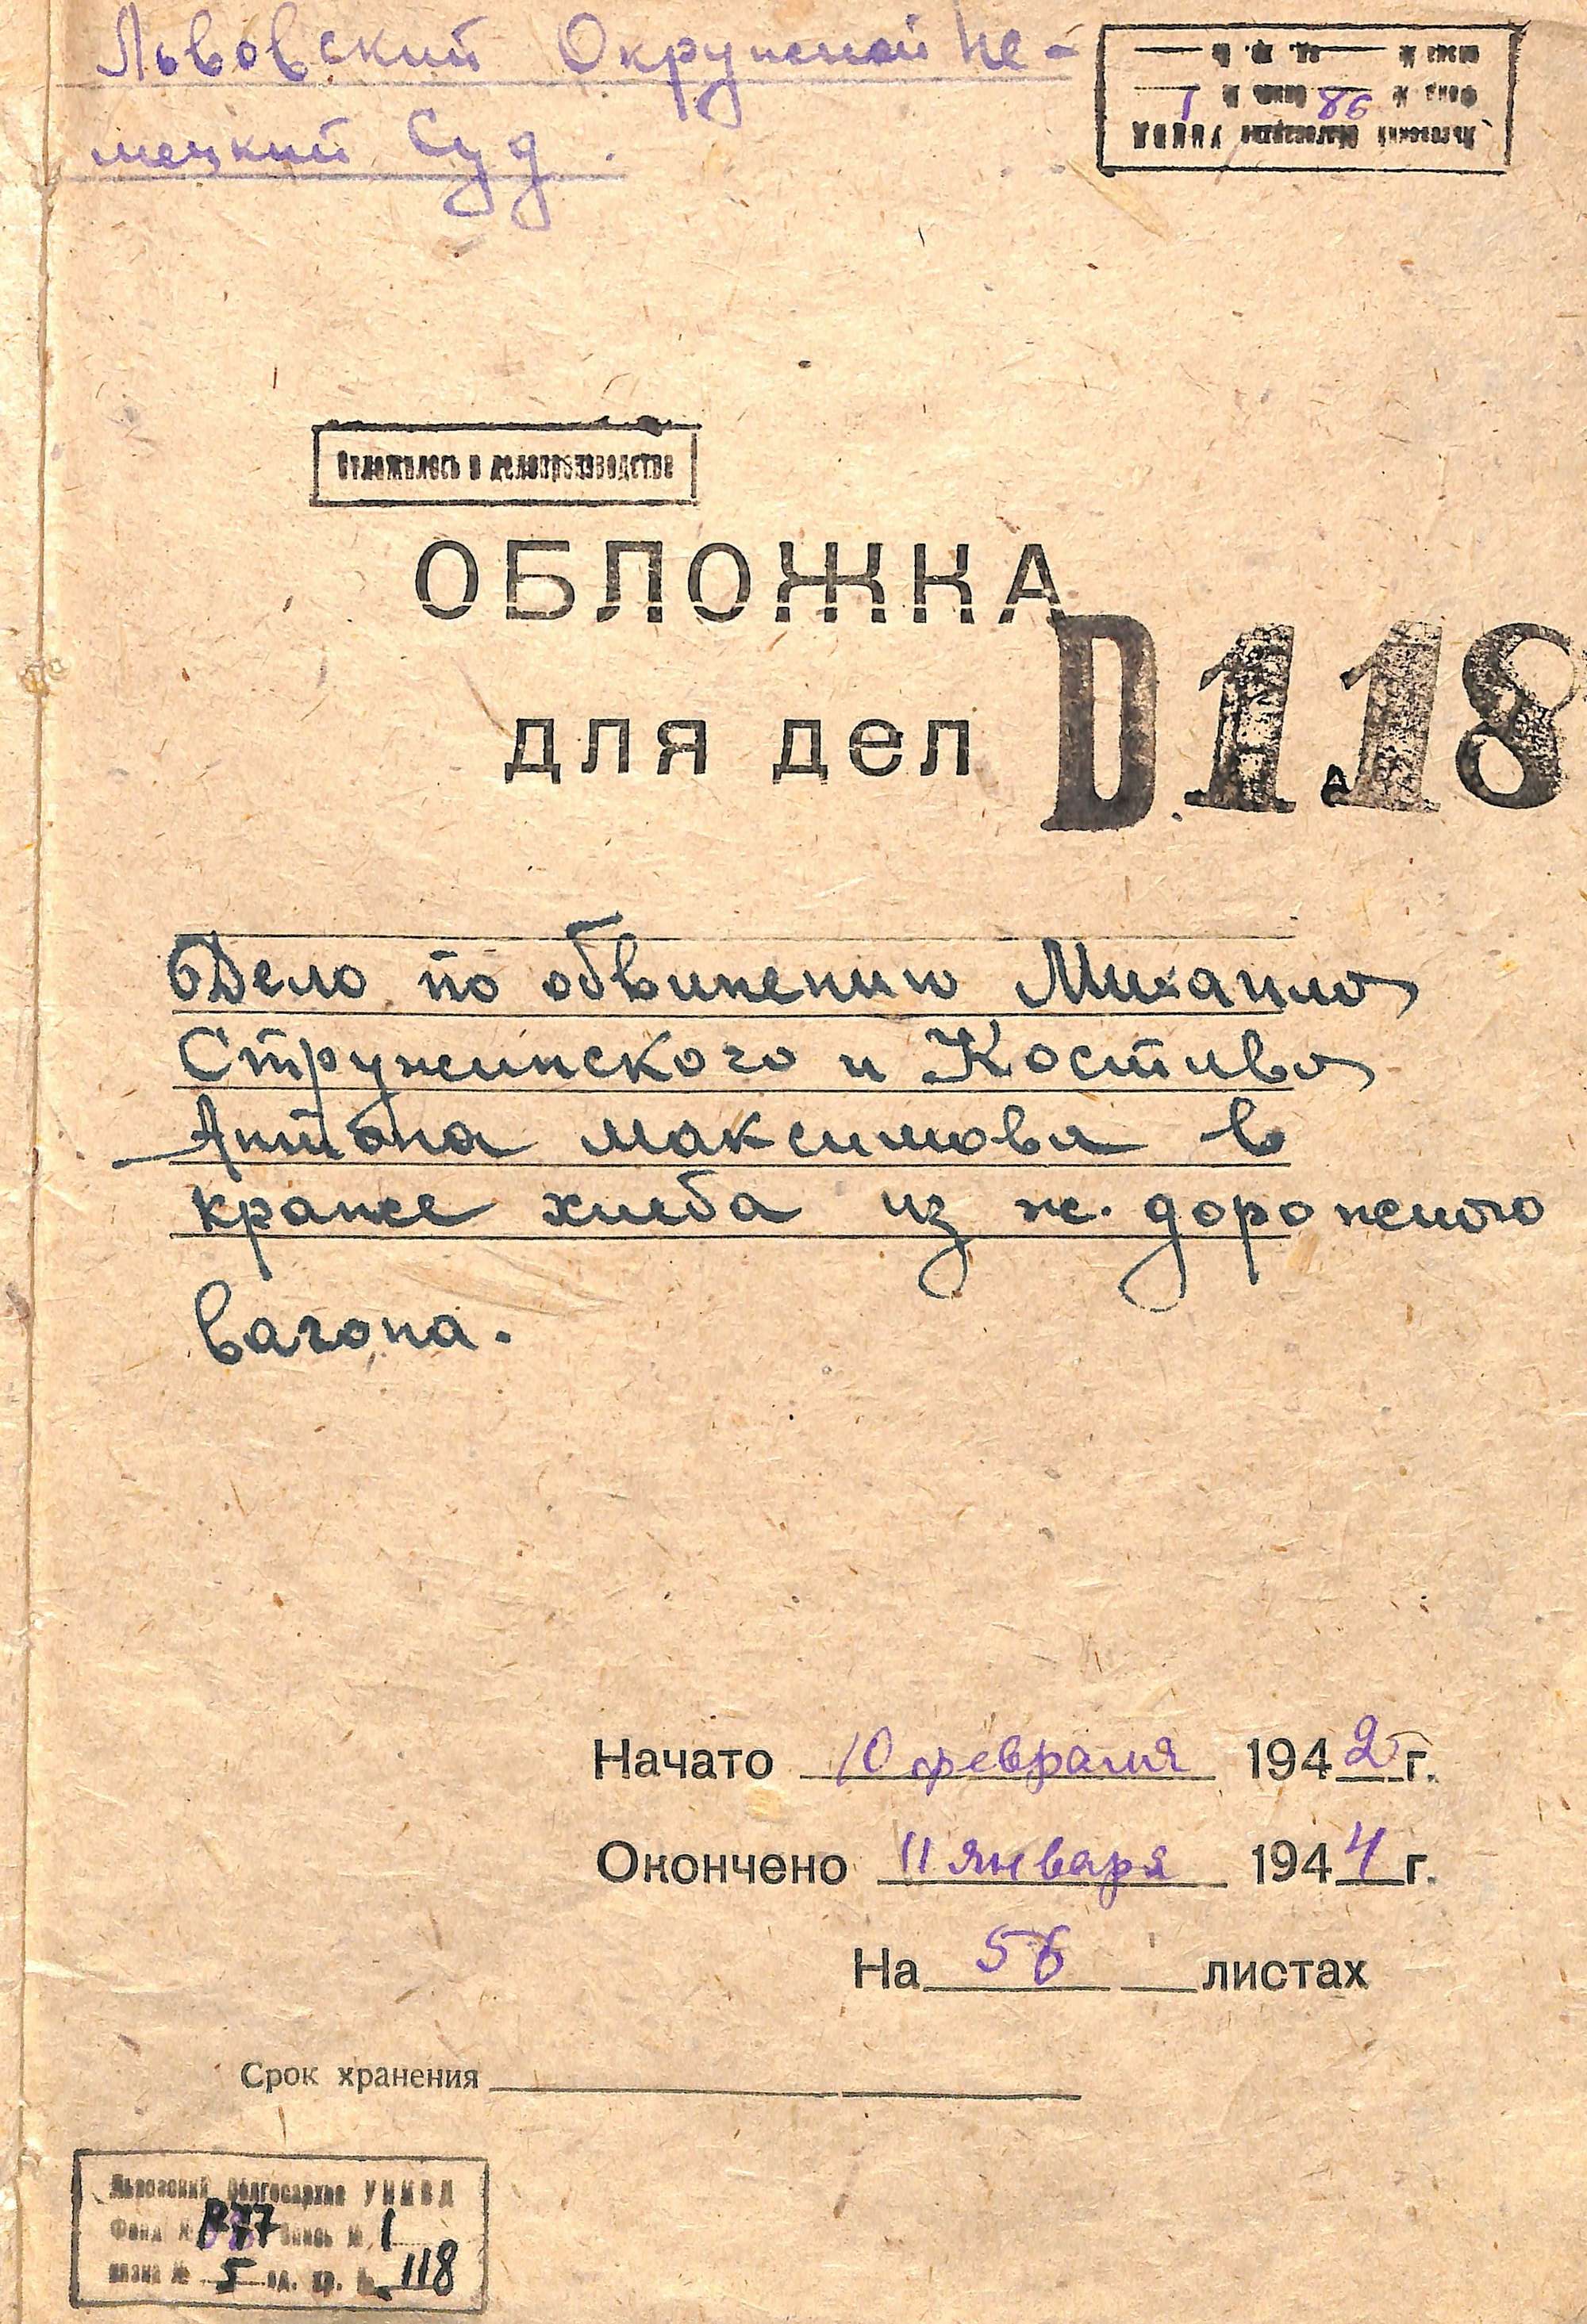 Львовский Окружной Не-
мецкий Суд.
Львовский Облгосархив УНКВД
Фонд № 86 Опись № 1
Связка № ед. хр. №
Отложилось в делопроизводстве
ОБЛОЖКА
для дел
D.118
Дело по обвинению Михаила
Стружинского и Костива
Антона Максимова в
краже хлеба из ж. дорожного
вагона.
Начато 10 февраля 1942 г.
Окончено 11 января 1944 г.
На 56 листах
Срок хранения
Львовский Облгосархив УНКВД
Фонд № Р-77 Опись № 1
вязка № 5 ед. хр. № 118